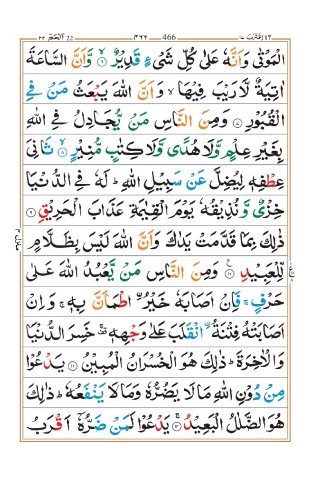 اقترب ١٧ 466 ٤٦٦ الحج ٢٢ 22
الْمَوْتٰى وَاَنَّهٗ عَلٰى كُلِّ شَىْءٍ قَدِيْرٌ ۙ‏﴿۶﴾ وَّاَنَّ السَّاعَةَ
اٰتِيَةٌ لَّا رَيْبَ فِيْهَا ۙ وَاَنَّ اللّٰهَ يَـبْعَثُ مَنْ فِى
الْقُبُوْرِ‏﴿۷﴾ وَمِنَ النَّاسِ مَنْ يُّجَادِلُ فِى اللّٰهِ
بِغَيْرِ عِلْمٍ وَّلَا هُدًى وَّلَا كِتٰبٍ مُّنِيْرٍ ۙ‏﴿۸﴾ ثَانِىَ
عِطْفِهٖ لِيُضِلَّ عَنْ سَبِيْلِ اللّٰهِ‌ ؕ لَهٗ فِى الدُّنْيَا
خِزْىٌ وَّنُذِيْقُهٗ يَوْمَ الْقِيٰمَةِ عَذَابَ الْحَرِيْقِ‏﴿۹﴾
ذٰ لِكَ بِمَا قَدَّمَتْ يَدٰكَ وَاَنَّ اللّٰهَ لَـيْسَ بِظَلَّامٍ
لِّلْعَبِيْدِ‏﴿۱۰﴾ وَمِنَ النَّاسِ مَنْ يَّعْبُدُ اللّٰهَ عَلٰى
حَرْفٍ‌ ۚ فَاِنْ اَصَابَهٗ خَيْرٌ اۨطْمَاَنَّ بِهٖ‌ ۚ وَاِنْ
اَصَابَتْهُ فِتْنَةُ اۨنْقَلَبَ عَلٰى وَجْهِهٖ‌ ۚ خَسِرَ الدُّنْيَا
وَالْاٰخِرَةَ ‌ؕ ذٰ لِكَ هُوَ الْخُسْرَانُ الْمُبِيْنُ‏﴿۱۱﴾ يَدْعُوْا
مِنْ دُوْنِ اللّٰهِ مَا لَا يَضُرُّهٗ وَمَا لَا يَنْفَعُهٗ ‌ؕ ذٰ لِكَ
هُوَ الضَّلٰلُ الْبَعِيْدُ‌ ۚ‏﴿۱۲﴾ يَدْعُوْا لَمَنْ ضَرُّهٗۤ اَقْرَبُ